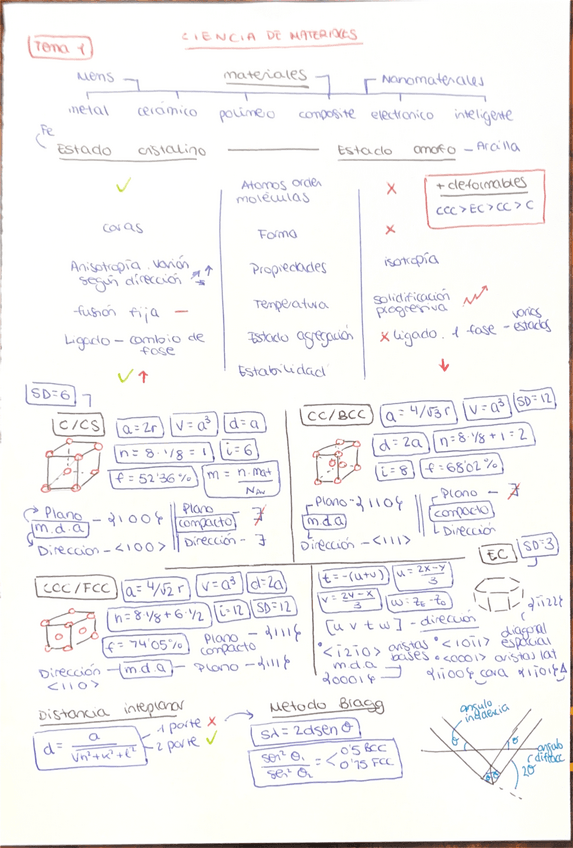 CIENCIA DE MATERIALES
Tema 1
Mens materiales Nanomateriales
metal cerámico polímero composite electronico inteligente
Fe
Estado cristalino Estado amorfo - Arcilla
✓ Atomos orden moléculas ✗
+ deformables
CCC > EC > CC > C
caras Forma ✗
Anisotropía. varían según dirección Propiedades isotropía
fusión fija — Temperatura solidificación progresiva
Ligado - cambio de fase Estado agregación ✗ Ligado. 1 fase - varios estados
✓ ↑ Estabilidad ↓
SD=6
C/CS a=2r V=a³ d=a
n=8·1/8=1 i=6
f=52'36% m = n·Mat / NAv
Plano m.d.a - {100} Plano compacto - ∄
Dirección - <100> Dirección - ∄
CC/BCC a=4/√3 r V=a³ SD=12
d=2a n=8·1/8+1=2
i=8 f=68'02%
Plano - {110} Plano - ∄
m d a compacto
Dirección - <111> Dirección
CCC/FCC a=4/√2 r V=a³ d=2a
n=8·1/8+6·1/2 i=12 SD=12
f=74'05% Plano compacto - {111}
Dirección - m.d.a - Plano - {111}
<110>
EC SD=3
t=-(u+v) u=2x-y/3
v=2y-x/3 w=z₂-z₀
[u v t w] - dirección
{1122}
diagonal espacial
<1210> aristas bases <1011>
m d a <0001> aristas lat
{0001} {1100} cara {1101}
Distancia interplanar
d = a / √h²+k²+l² 1 parte ✗
2 parte ✓
Metodo Bragg
sλ = 2dsen θ
sen² θ₁ / sen² θ₂ = < 0'5 BCC
0'75 FCC
angulo incidencia
θ θ
angulo difracc
2θ